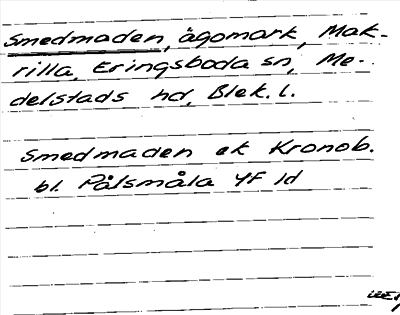 Smedmaden, ägomark, Mak-
rilla, Eringsboda sn, Me-
delstads hd, Blek. l.
Smedmaden ek Kronob.
bl. Pålsmåla 4F 1d